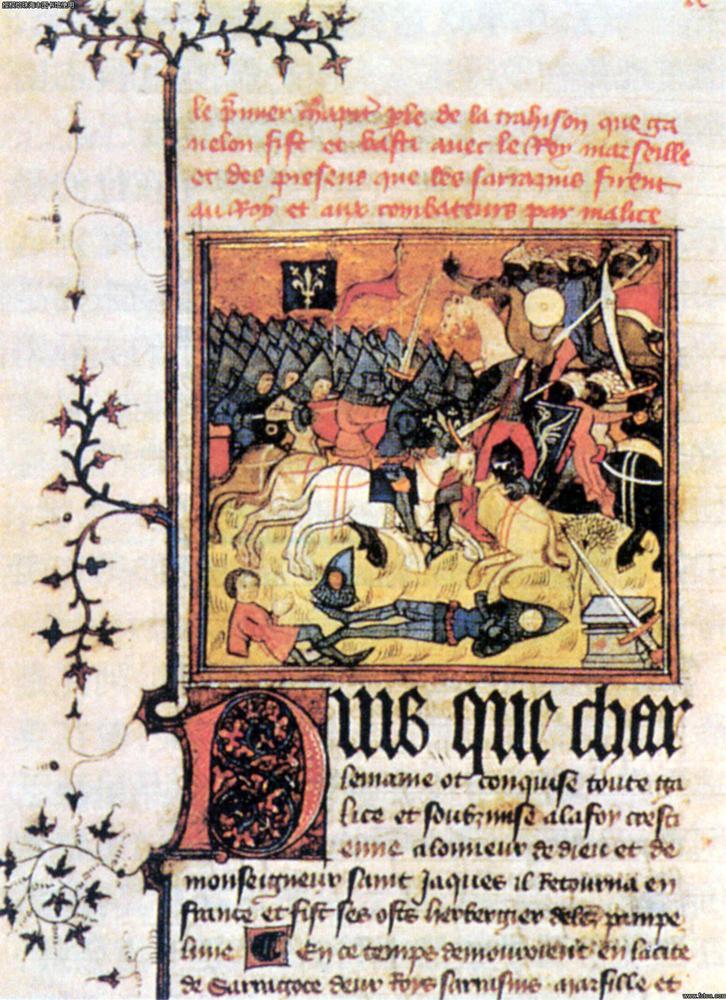 le p̄mier chapitre ple de la trahison que ga
nelon fist et basti avec le Roy marseille
et des presens que les sarrazins firent
au Roy et aux combateurs par malice
Puis que char
lemaine ot conquise toute ga
lice et soubzmise a la foy cresti
enne a lonneur de dieu et de
monseigneur saint Jaques il Retourna en
france et fist ses osts herbergier delez pampe
lune En ce temps demouroient en la cite
de Sarragoce deux Roys sarrasins marsille et
www.fotoe.com